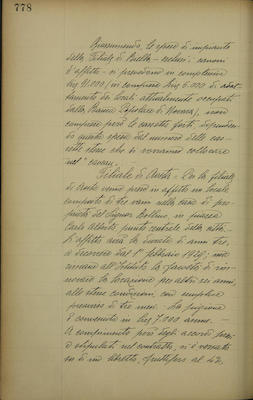 778
Riassumendo, le spese di impianto
della Filiale di Biella - esclusi i canoni
d'affitto - si prevedono in complessive
Lire 91.000 (in comprese Lire 6.000 di adat-
tamento dei locali attualmente occupati
dalla Banca Popolare di Novara), non
comprese però le cassette forti - dipendendo
questa spesa dal numero delle cas-
sette stesse che si vorranno collocare
nel "caveau".
Filiale di Aosta - Per la filiale
di Aosta venne preso in affitto un locale
composto di tre vani nella casa di pro-
prietà del Signor Bollino, in piazza
Carlo Alberto, punto centrale della città.
L'affitto avrà la durata di anni tre,
a decorrere dal 1° febbraio 1926;
all'Istituto la facoltà di rin-
novare la locazione per altri sei anni,
alle stesse condizioni, con semplice
preavviso di sei mesi. La pigione
è convenuta in Lire 7.000 annue.
A compimento però degli accordi presi
e stipulati nel contratto, si è versato
su di un libretto fruttifero al 4 2,